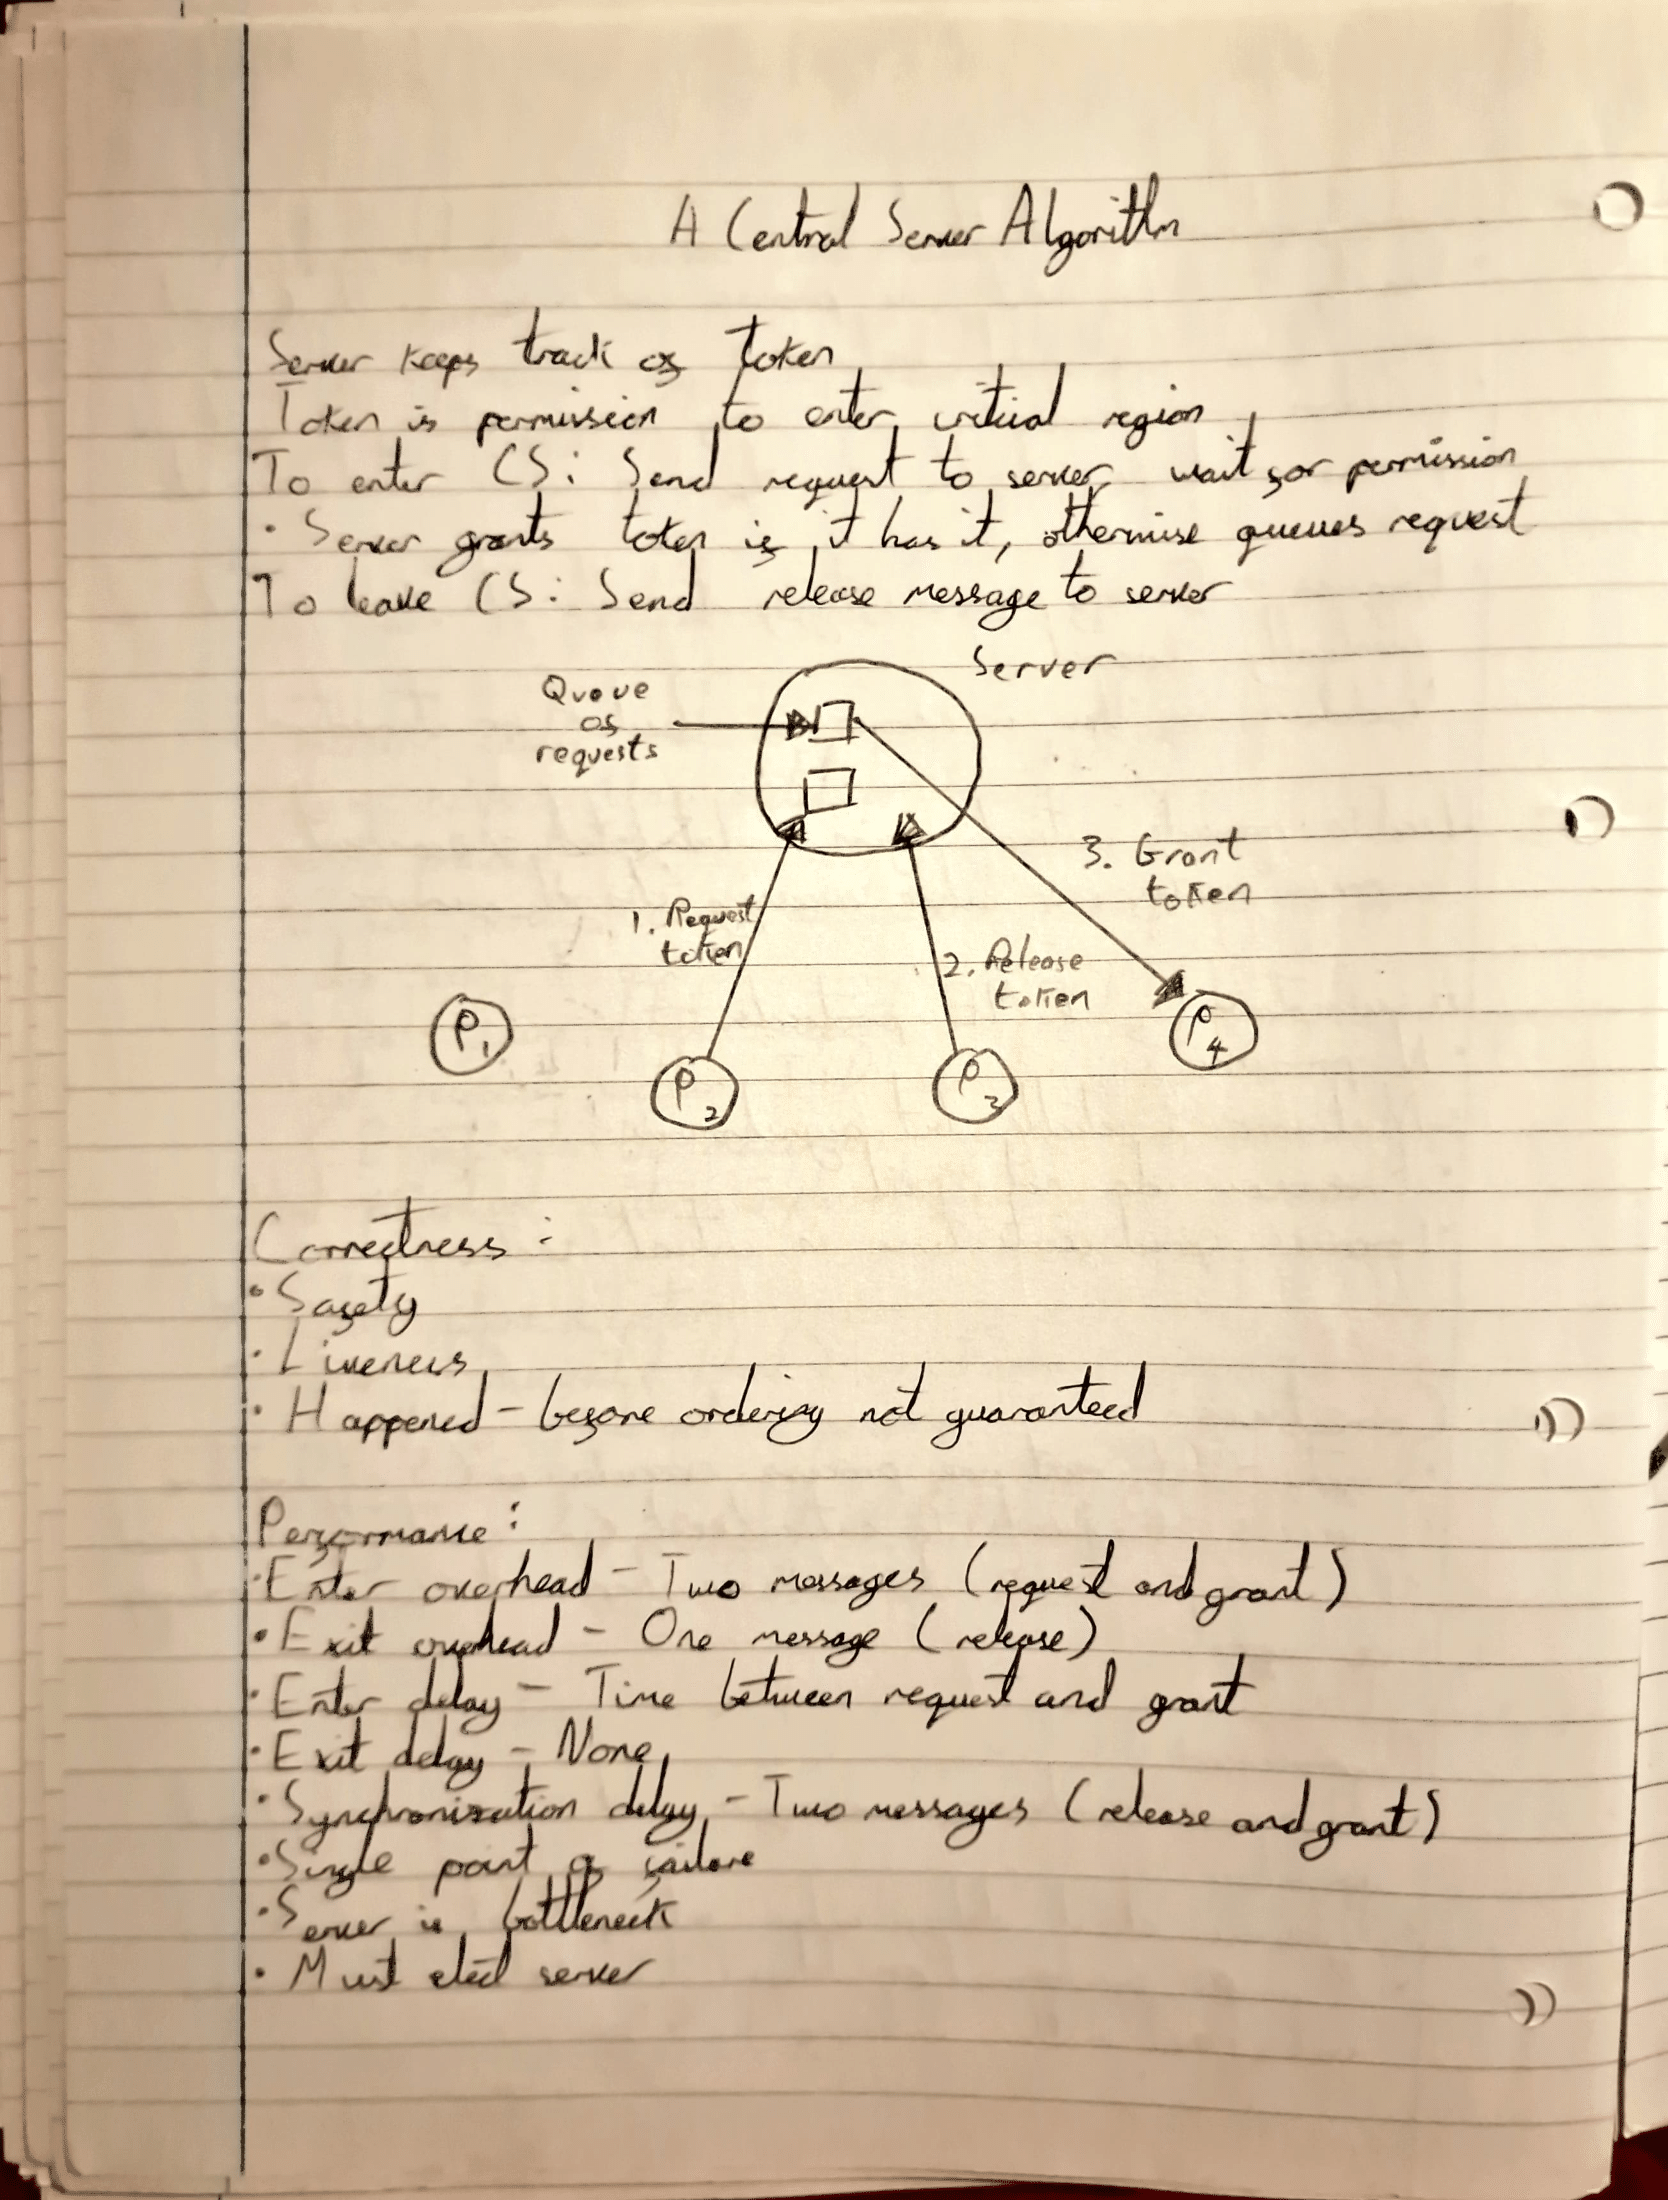 A Central Server Algorithm
Server keeps track of token
Token is permission to enter critical region
To enter CS: Send request to server, wait for permission
· Server grants token if it has it, otherwise queues request
To leave CS: Send release message to server
Server
Queue
of
requests
3. Grant
token
1. Request
token
2. Release
token
P1
P2
P3
P4
Correctness:
· Safety
· Liveness
· Happened - before ordering not guaranteed
Performance:
· Enter overhead - Two messages (request and grant)
· Exit overhead - One message (release)
· Enter delay - Time between request and grant
· Exit delay - None
· Synchronization delay - Two messages (release and grant)
· Single point of failure
· Server is bottleneck
· Must elect server